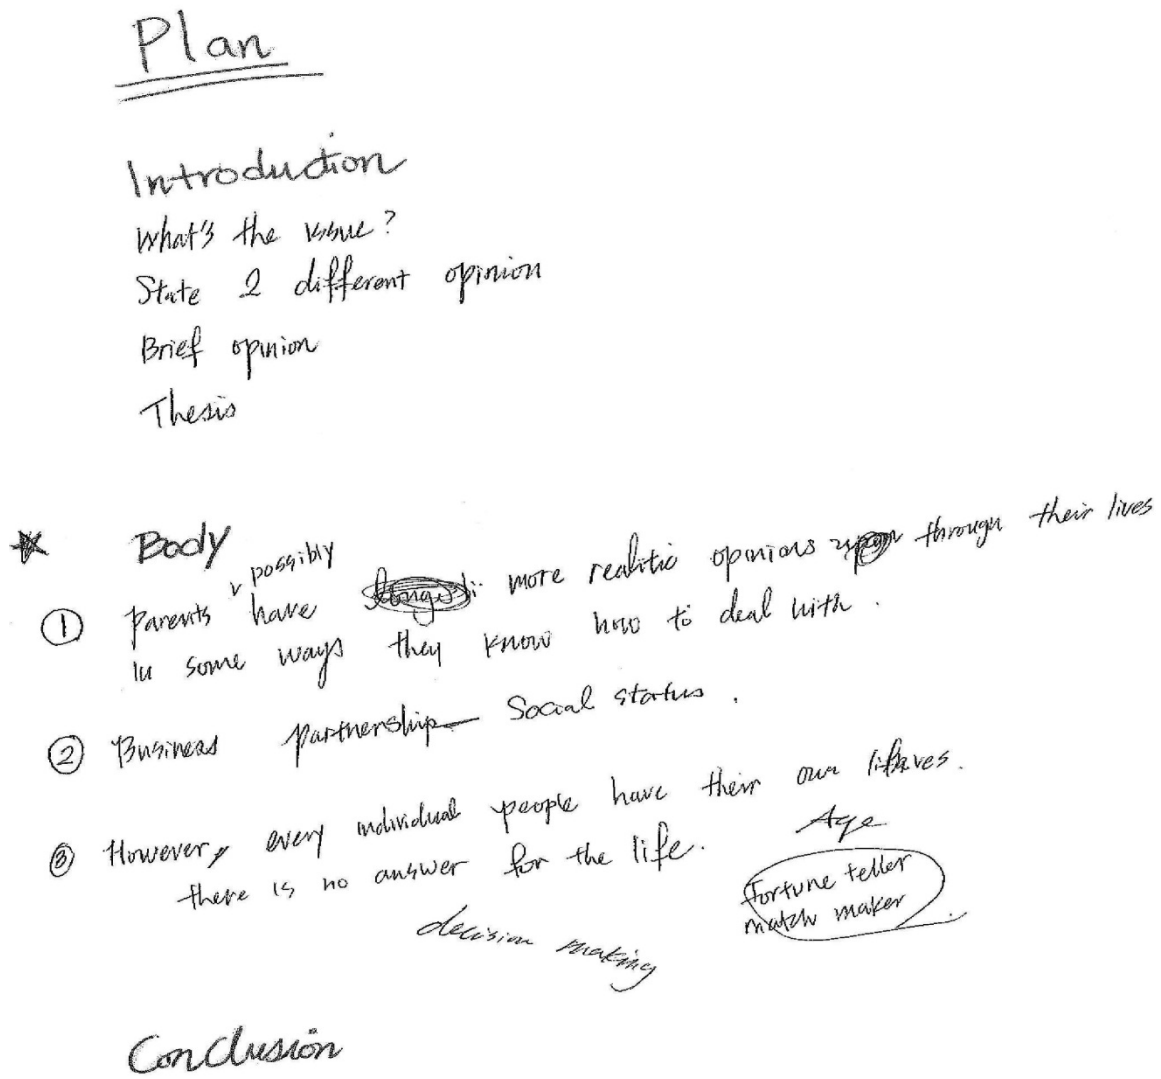 Plan
Introduction
What's the issue?
State 2 different opinion
Brief opinion
Thesis
Body
possibly
① Parents have more realitic opinions through their lives
In some ways they know how to deal with.
② Business partnership – Social status.
③ However, every individual people have their own lives.
there is no answer for the life.
Age
Fortune teller
match maker
decision making
Conclusion